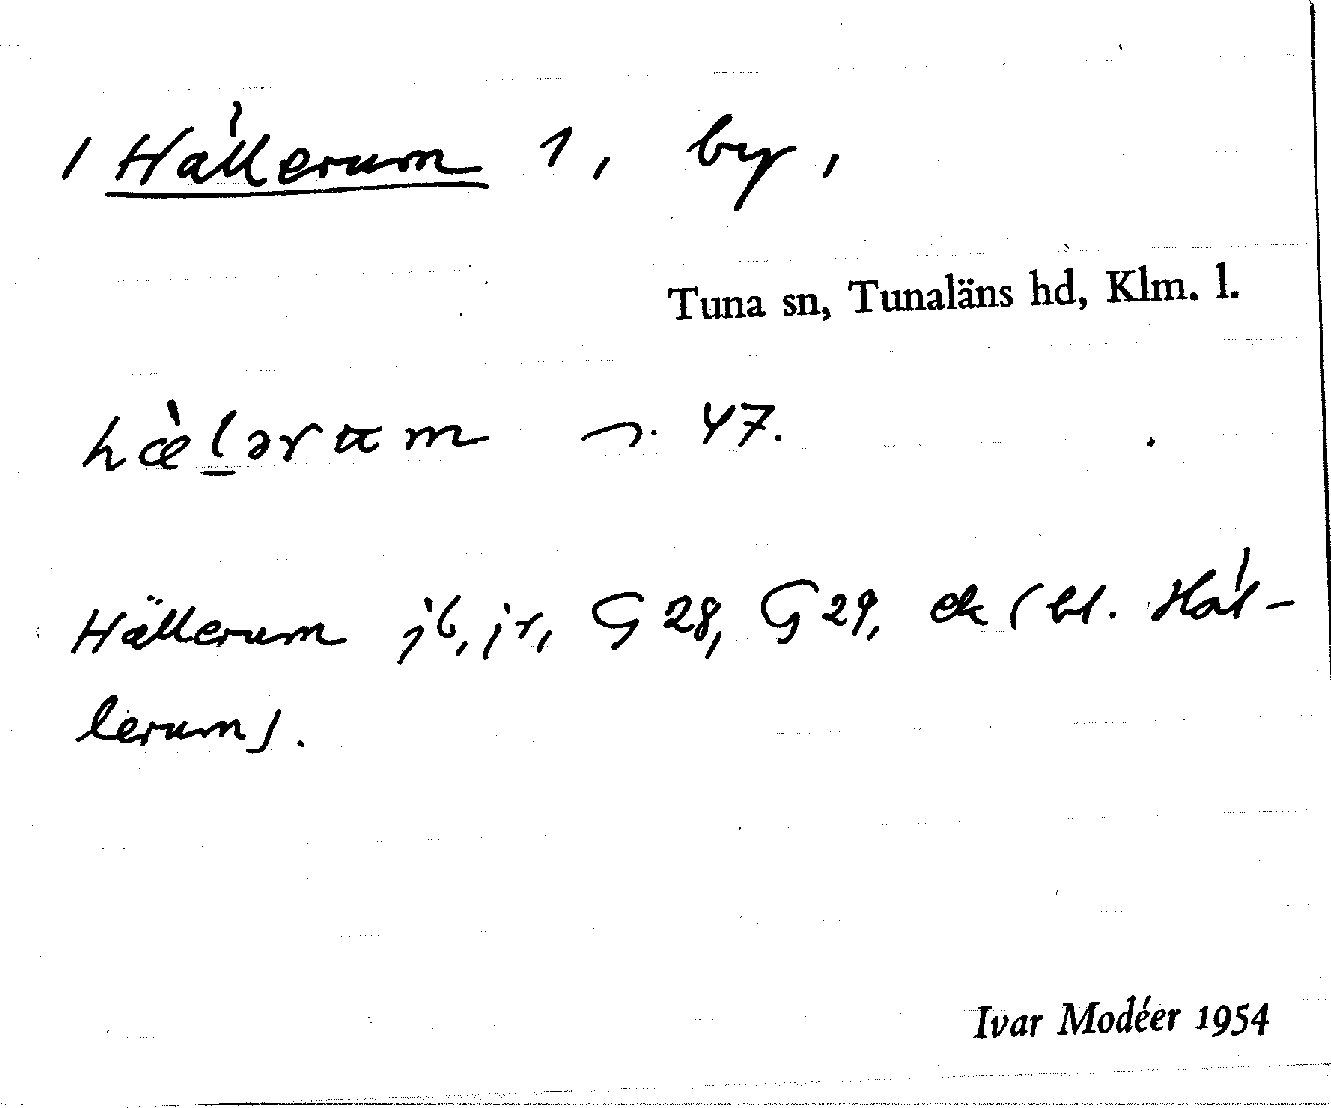 / Hållerum 1, by,
Tuna sn, Tunaläns hd, Klm. l.
hæ̀lərum 47.
Hällerum jb, jr, G 28, G 29, ek (bl. Hål-
lerum).
Ivar Modéer 1954